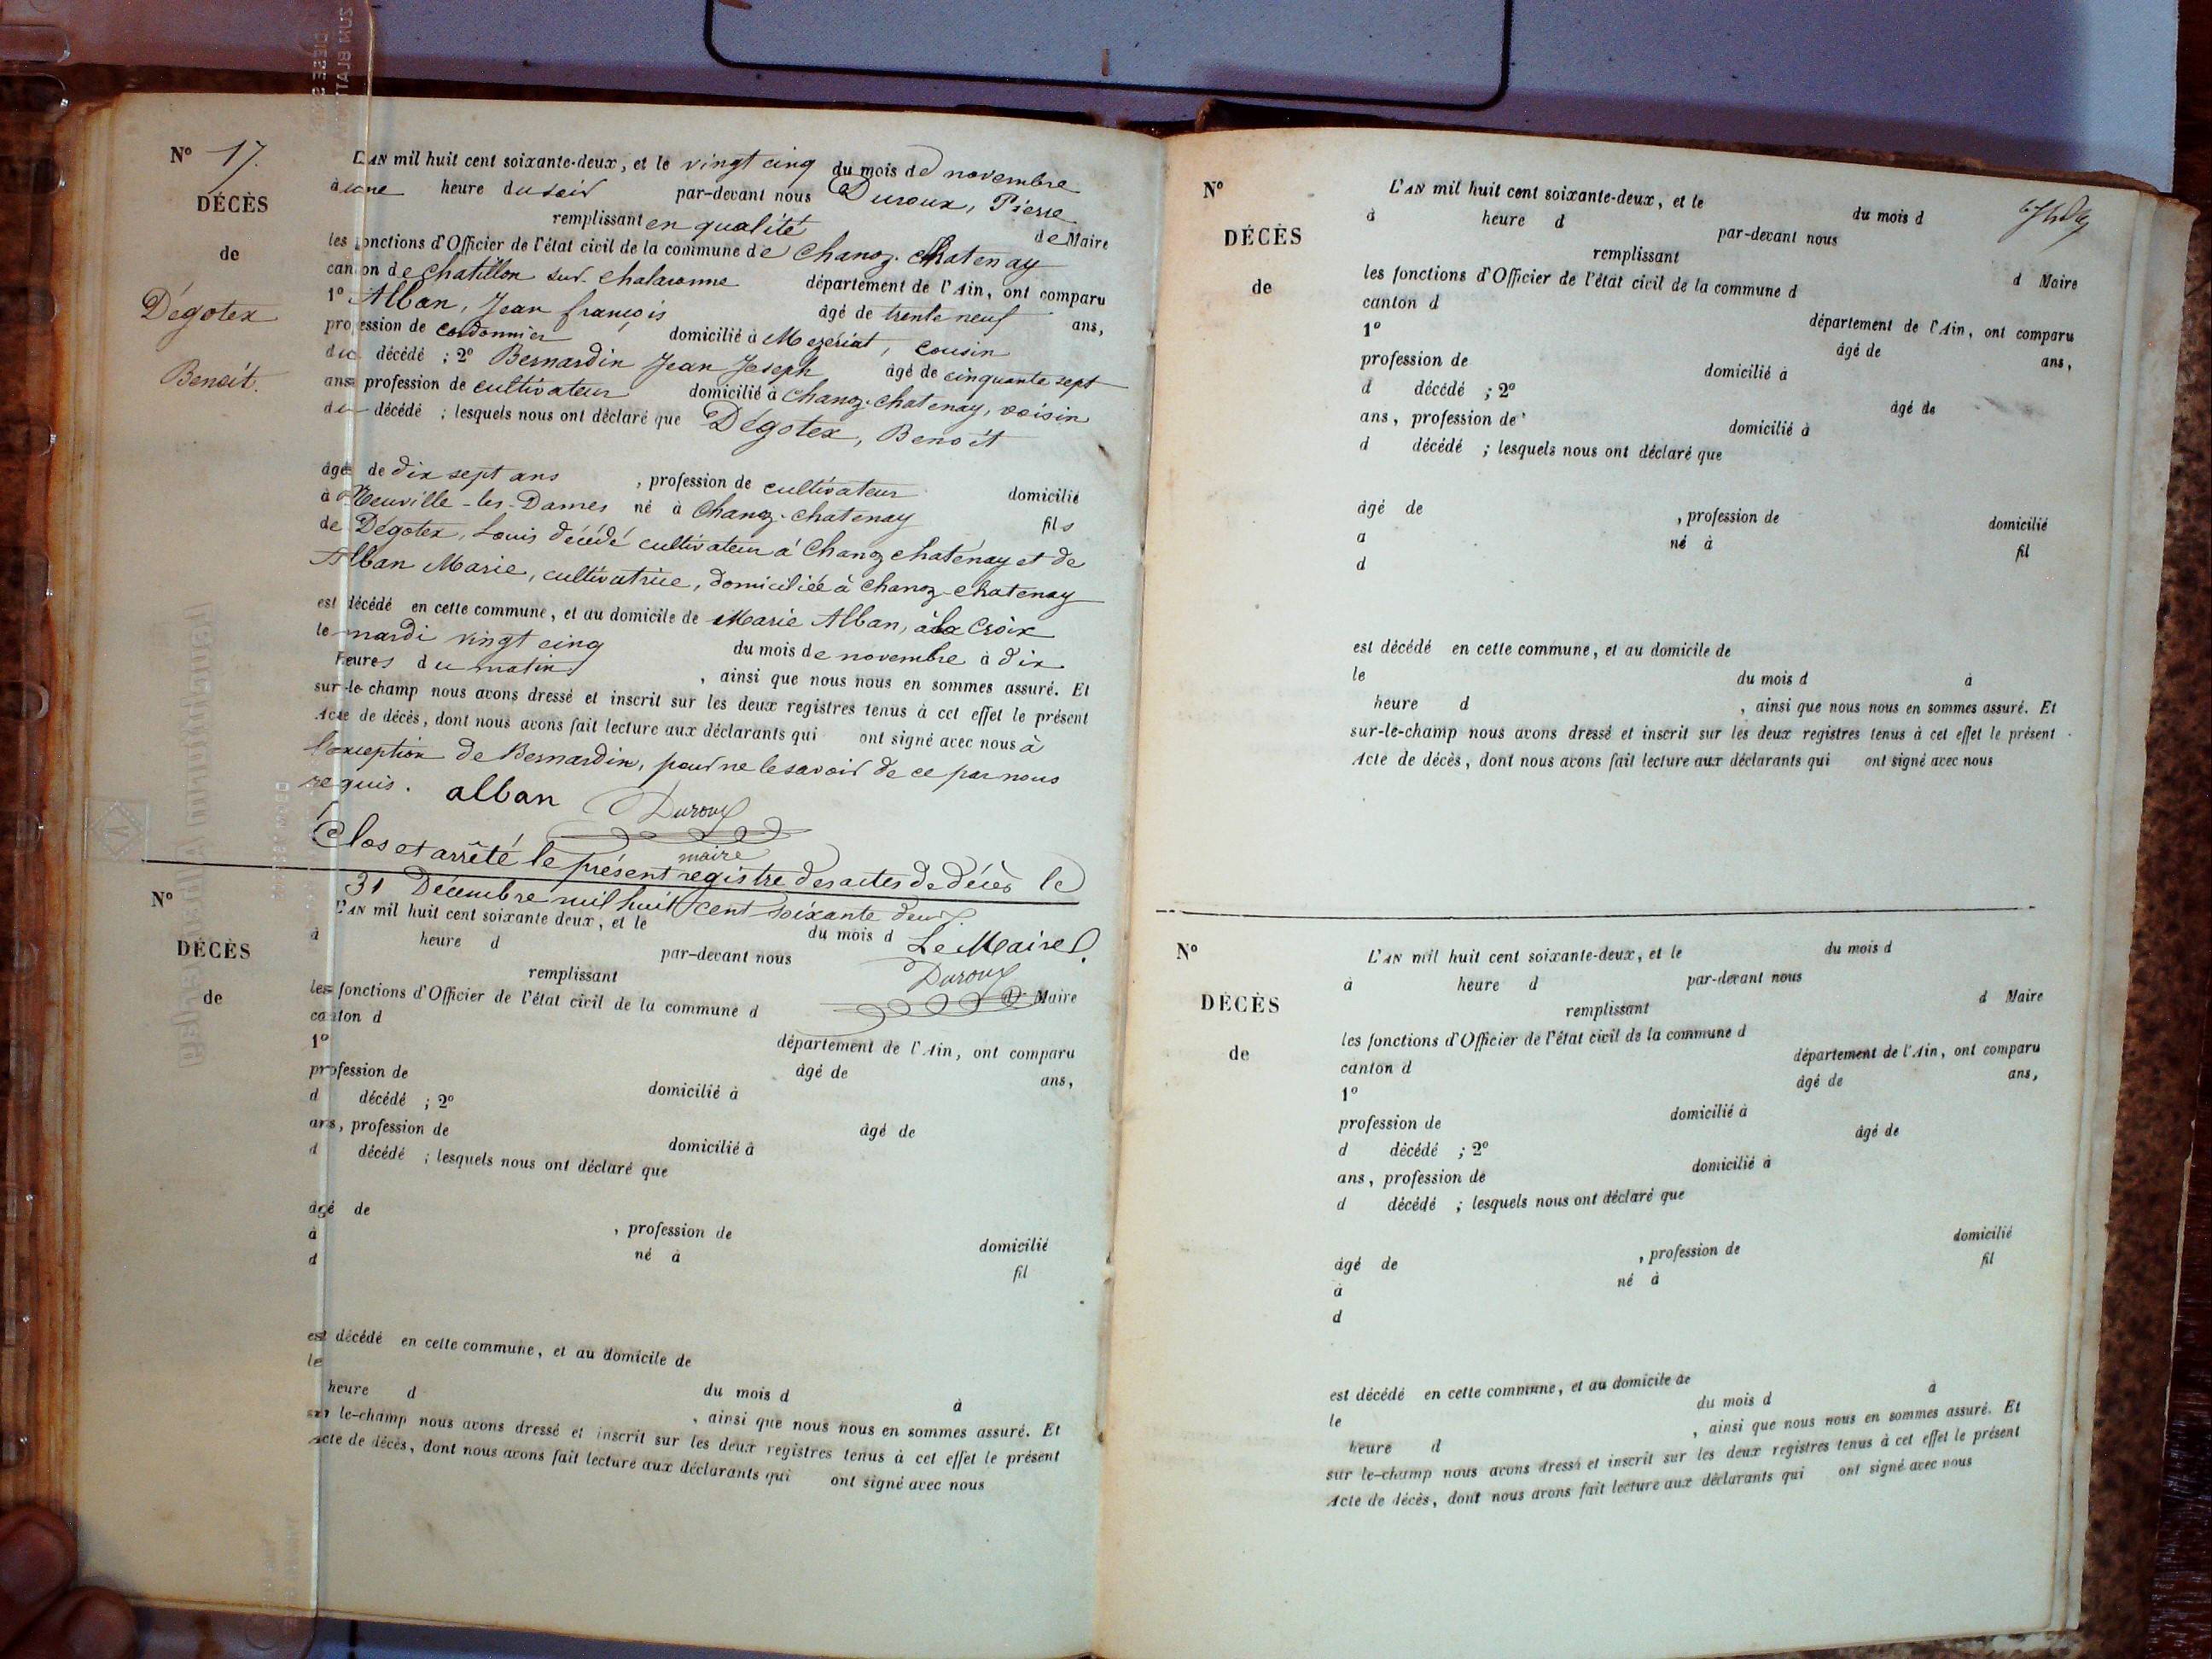 Nº 17.
DÉCÈS
de
Dégotex
Benoit.
L'AN mil huit cent soixante-deux, et le vingt cinq du mois de novembre
à une heure du soir par-devant nous Duroux, Pierre
remplissant en qualité de Maire
les fonctions d'Officier de l'état civil de la commune de Chanoz-Chatenay
canton de Chatillon sur Chalaronne département de l'Ain, ont comparu
1º Alban, Jean françois âgé de trente neuf ans,
profession de cordonnier domicilié à Mezériat, cousin
du décédé ; 2º Bernardin Jean Joseph âgé de cinquante sept
ans profession de cultivateur domicilié à Chanoz-Chatenay, voisin
du décédé ; lesquels nous ont déclaré que Dégotex, Benoit
âgé de dix sept ans , profession de cultivateur domicilié
à Neuville-les-Dames né à Chanoz-Chatenay fils
de Dégotex, Louis décédé cultivateur à Chanoz chatenay et de
Alban Marie, cultivatrice, domiciliée à Chanoz-Chatenay
est décédé en cette commune, et au domicile de Marie Alban, à la Croix
le mardi vingt cinq du mois de novembre à dix
heures du matin , ainsi que nous nous en sommes assuré. Et
sur-le-champ nous avons dressé et inscrit sur les deux registres tenus à cet effet le présent
Acte de décès, dont nous avons fait lecture aux déclarants qui ont signé avec nous à
l'exception de Bernardin, pour ne le savoir de ce par nous
requis. alban Duroux
maire
Clos et arrêté le présent registre des actes de décès le
31 Décembre mil huit cent soixante deux
Le Maire
Duroux
Nº
DÉCÈS
de
L'AN mil huit cent soixante deux, et le du mois d
à heure d par-devant nous
remplissant d Maire
les fonctions d'Officier de l'état civil de la commune d
canton d département de l'Ain, ont comparu
1º âgé de ans,
profession de domicilié à
d décédé ; 2º âgé de
ans, profession de domicilié à
d décédé ; lesquels nous ont déclaré que
âgé de , profession de domicilié
à né à fil
d
est décédé en cette commune, et au domicile de
le du mois d à
heure d , ainsi que nous nous en sommes assuré. Et
sur le-champ nous avons dressé et inscrit sur les deux registres tenus à cet effet le présent
Acte de décès, dont nous avons fait lecture aux déclarants qui ont signé avec nous
Nº
DÉCÈS
de
L'AN mil huit cent soixante-deux, et le du mois d
à heure d par-devant nous
remplissant d Maire
les fonctions d'Officier de l'état civil de la commune d
canton d département de l'Ain, ont comparu
1º âgé de ans,
profession de domicilié à
d décédé ; 2º âgé de
ans, profession de domicilié à
d décédé ; lesquels nous ont déclaré que
âgé de , profession de domicilié
a né à fil
d
est décédé en cette commune, et au domicile de
le du mois d à
heure d , ainsi que nous nous en sommes assuré. Et
sur-le-champ nous avons dressé et inscrit sur les deux registres tenus à cet effet le présent
Acte de décès, dont nous avons fait lecture aux déclarants qui ont signé avec nous
Nº
DÉCÈS
de
L'AN mil huit cent soixante-deux, et le du mois d
à heure d par-devant nous
remplissant d Maire
les fonctions d'Officier de l'état civil de la commune d
canton d département de l'Ain, ont comparu
1º âgé de ans,
profession de domicilié à
d décédé ; 2º âgé de
ans, profession de domicilié à
d décédé ; lesquels nous ont déclaré que
âgé de , profession de domicilié
à né à fil
d
est décédé en cette commune, et au domicile de
le du mois d à
heure d , ainsi que nous nous en sommes assuré. Et
sur le-champ nous avons dressé et inscrit sur les deux registres tenus à cet effet le présent
Acte de décès, dont nous avons fait lecture aux déclarants qui ont signé avec nous